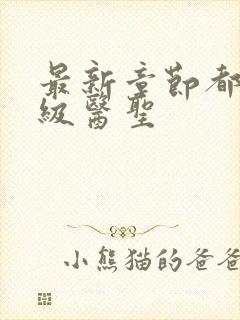 最新章節都
級醫聖
小熊猫的爸爸